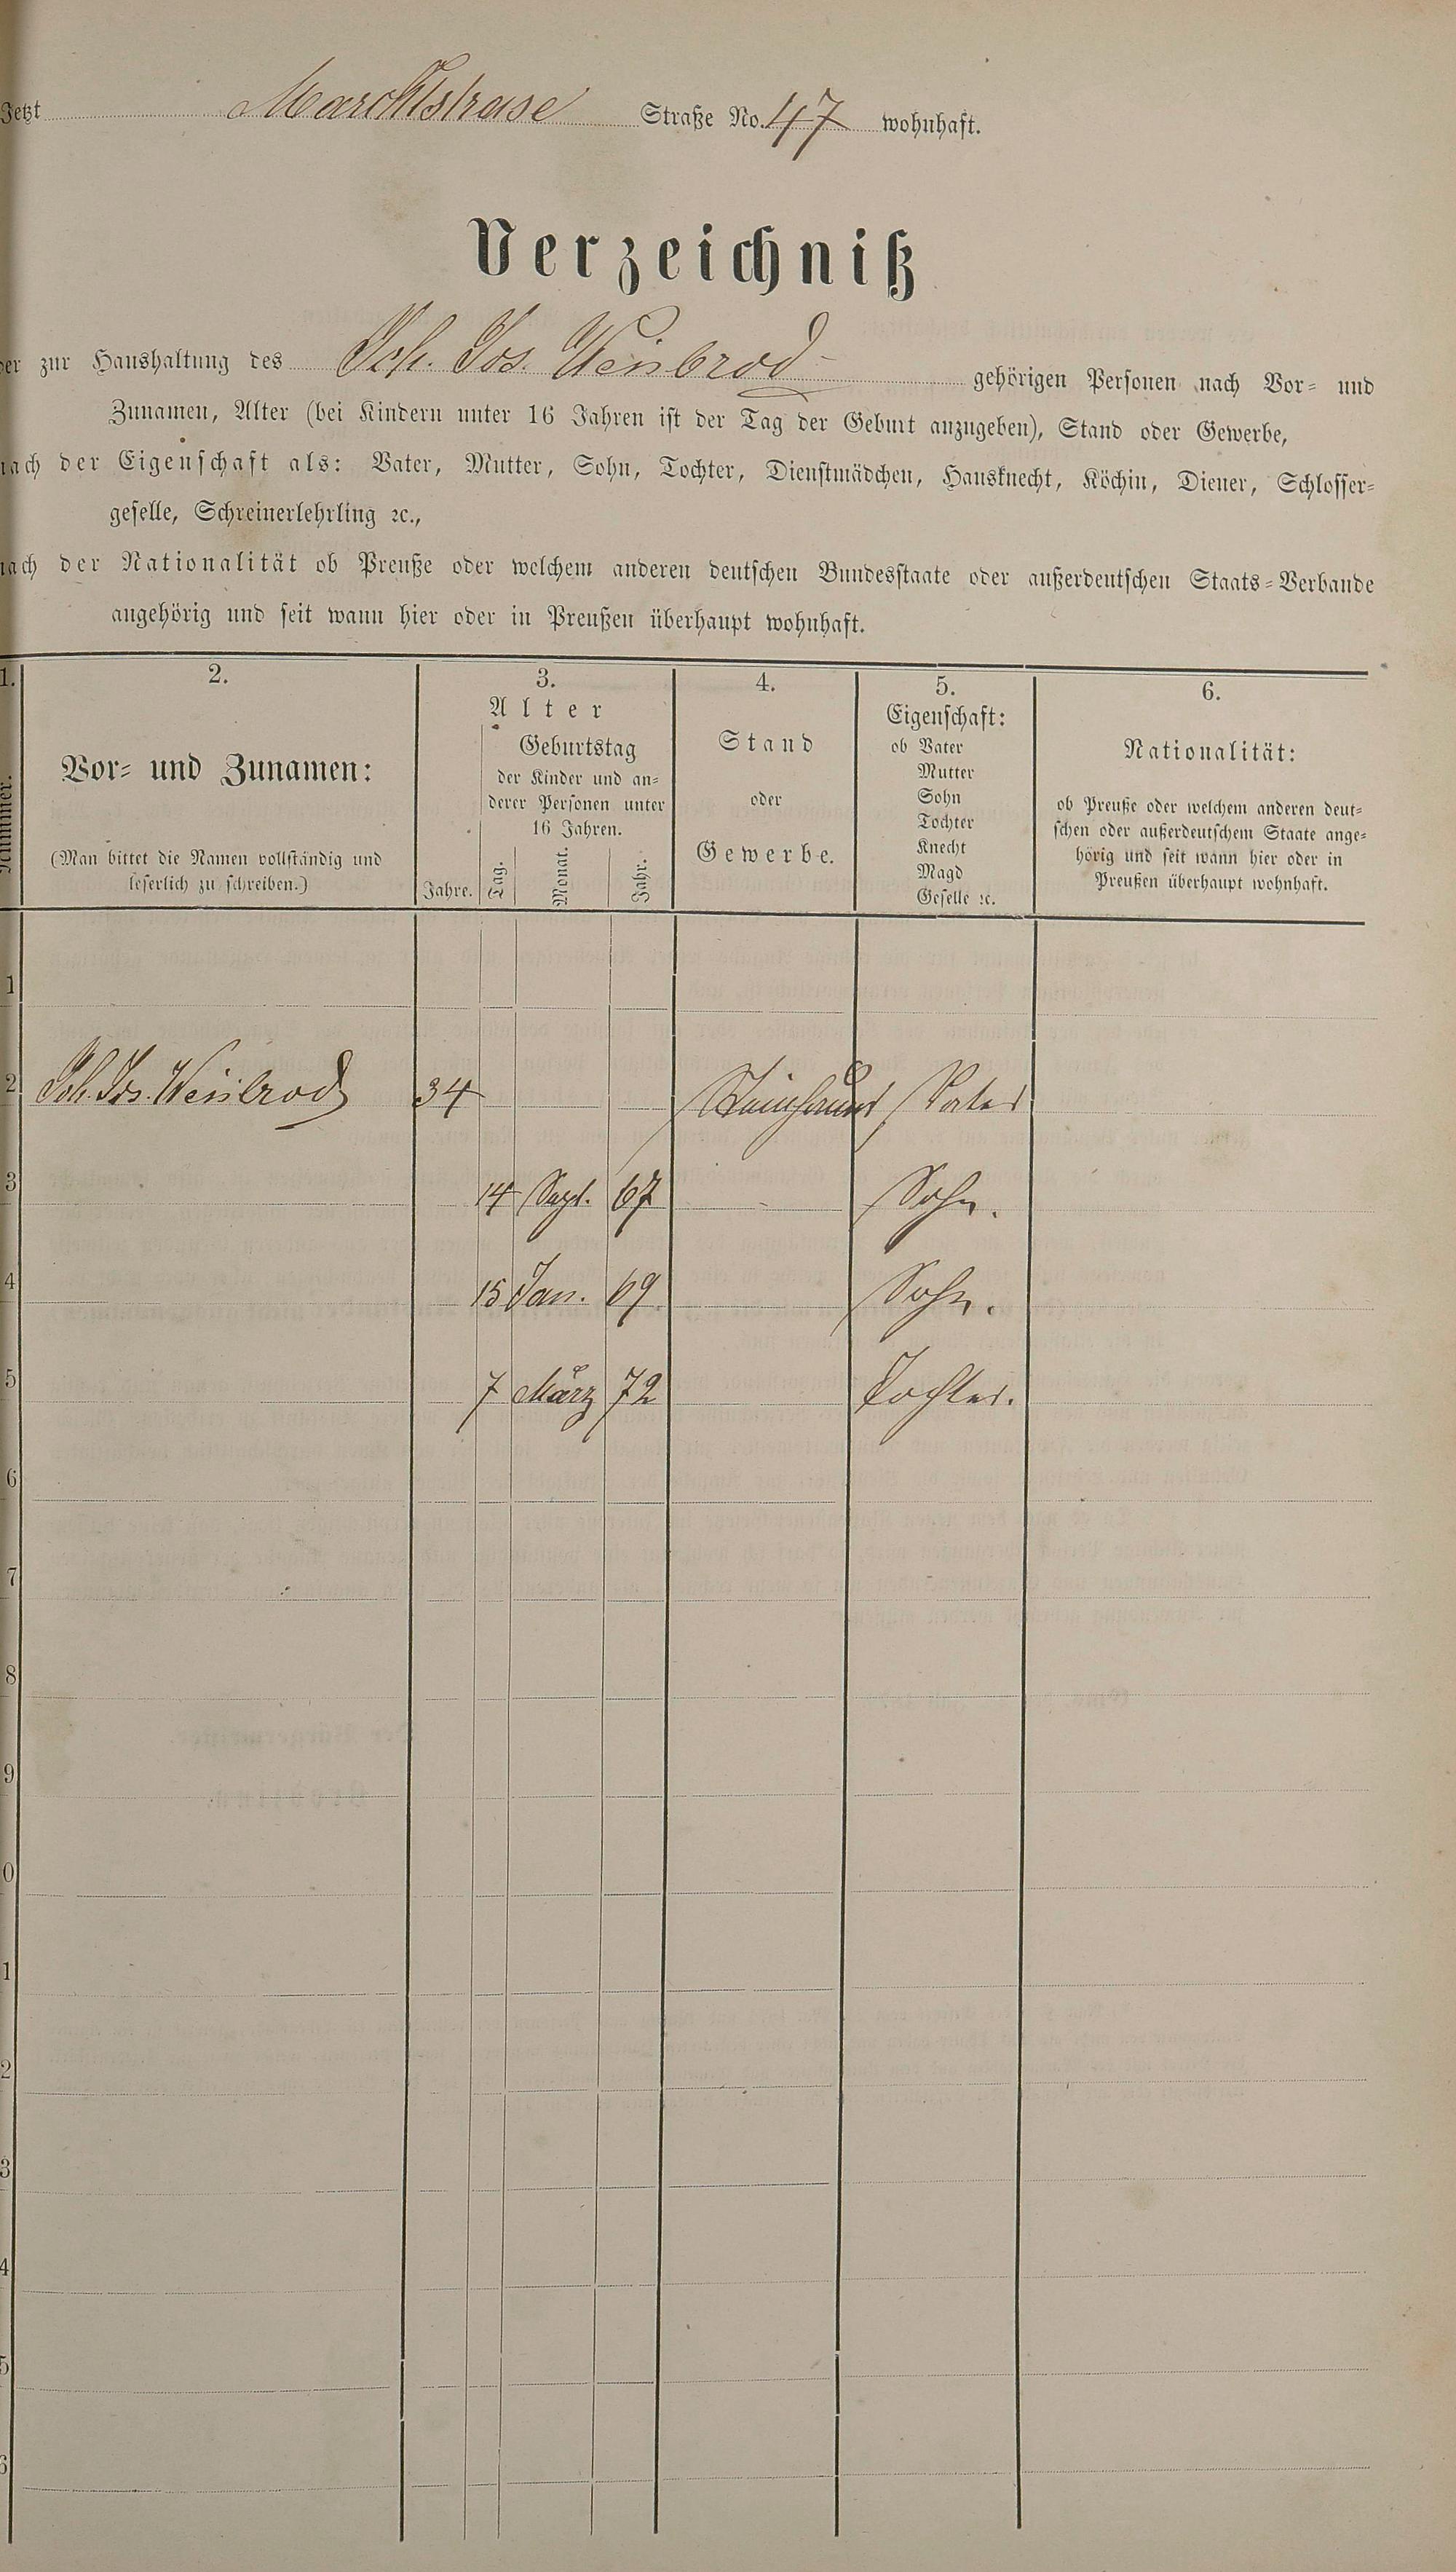 Jetzt Marcktstrase Straße No. 47 wohnhaft.
Verzeichniß
der zur Haushaltung des Joh. Jos. Weisbrod gehörigen Personen nach Vor- und
Zunamen, Alter (bei Kindern unter 16 Jahren ist der Tag der Geburt anzugeben), Stand oder Gewerbe,
nach der Eigenschaft als: Vater, Mutter, Sohn, Tochter, Dienstmädchen, Hausknecht, Köchin, Diener, Schlosser-
geselle, Schreinerlehrling ꝛc.,
nach der Nationalität ob Preuße oder welchem anderen deutschen Bundesstaate oder außerdeutschen Staats-Verbande
angehörig und seit wann hier oder in Preußen überhaupt wohnhaft.
1.
Nummer.
2.
Vor- und Zunamen:
(Man bittet die Namen vollständig und
leserlich zu schreiben.)
3.
Alter
Jahre.
Geburtstag
der Kinder und an-
derer Personen unter
16 Jahren.
Tag. Monat. Jahr.
4.
Stand
oder
Gewerbe.
5.
Eigenschaft:
ob Vater
Mutter
Sohn
Tochter
Knecht
Magd
Geselle ꝛc.
6.
Nationalität:
ob Preuße oder welchem anderen deut-
schen oder außerdeutschem Staate ange-
hörig und seit wann hier oder in
Preußen überhaupt wohnhaft.
1
2 Joh. Jos. Weisbrod 34 Vater
3 14 Sept. 67 Sohn.
4 15 Jan. 69 Sohn.
5 7 März 72 Tochter.
6
7
8
9
0
1
2
3
4
5
6